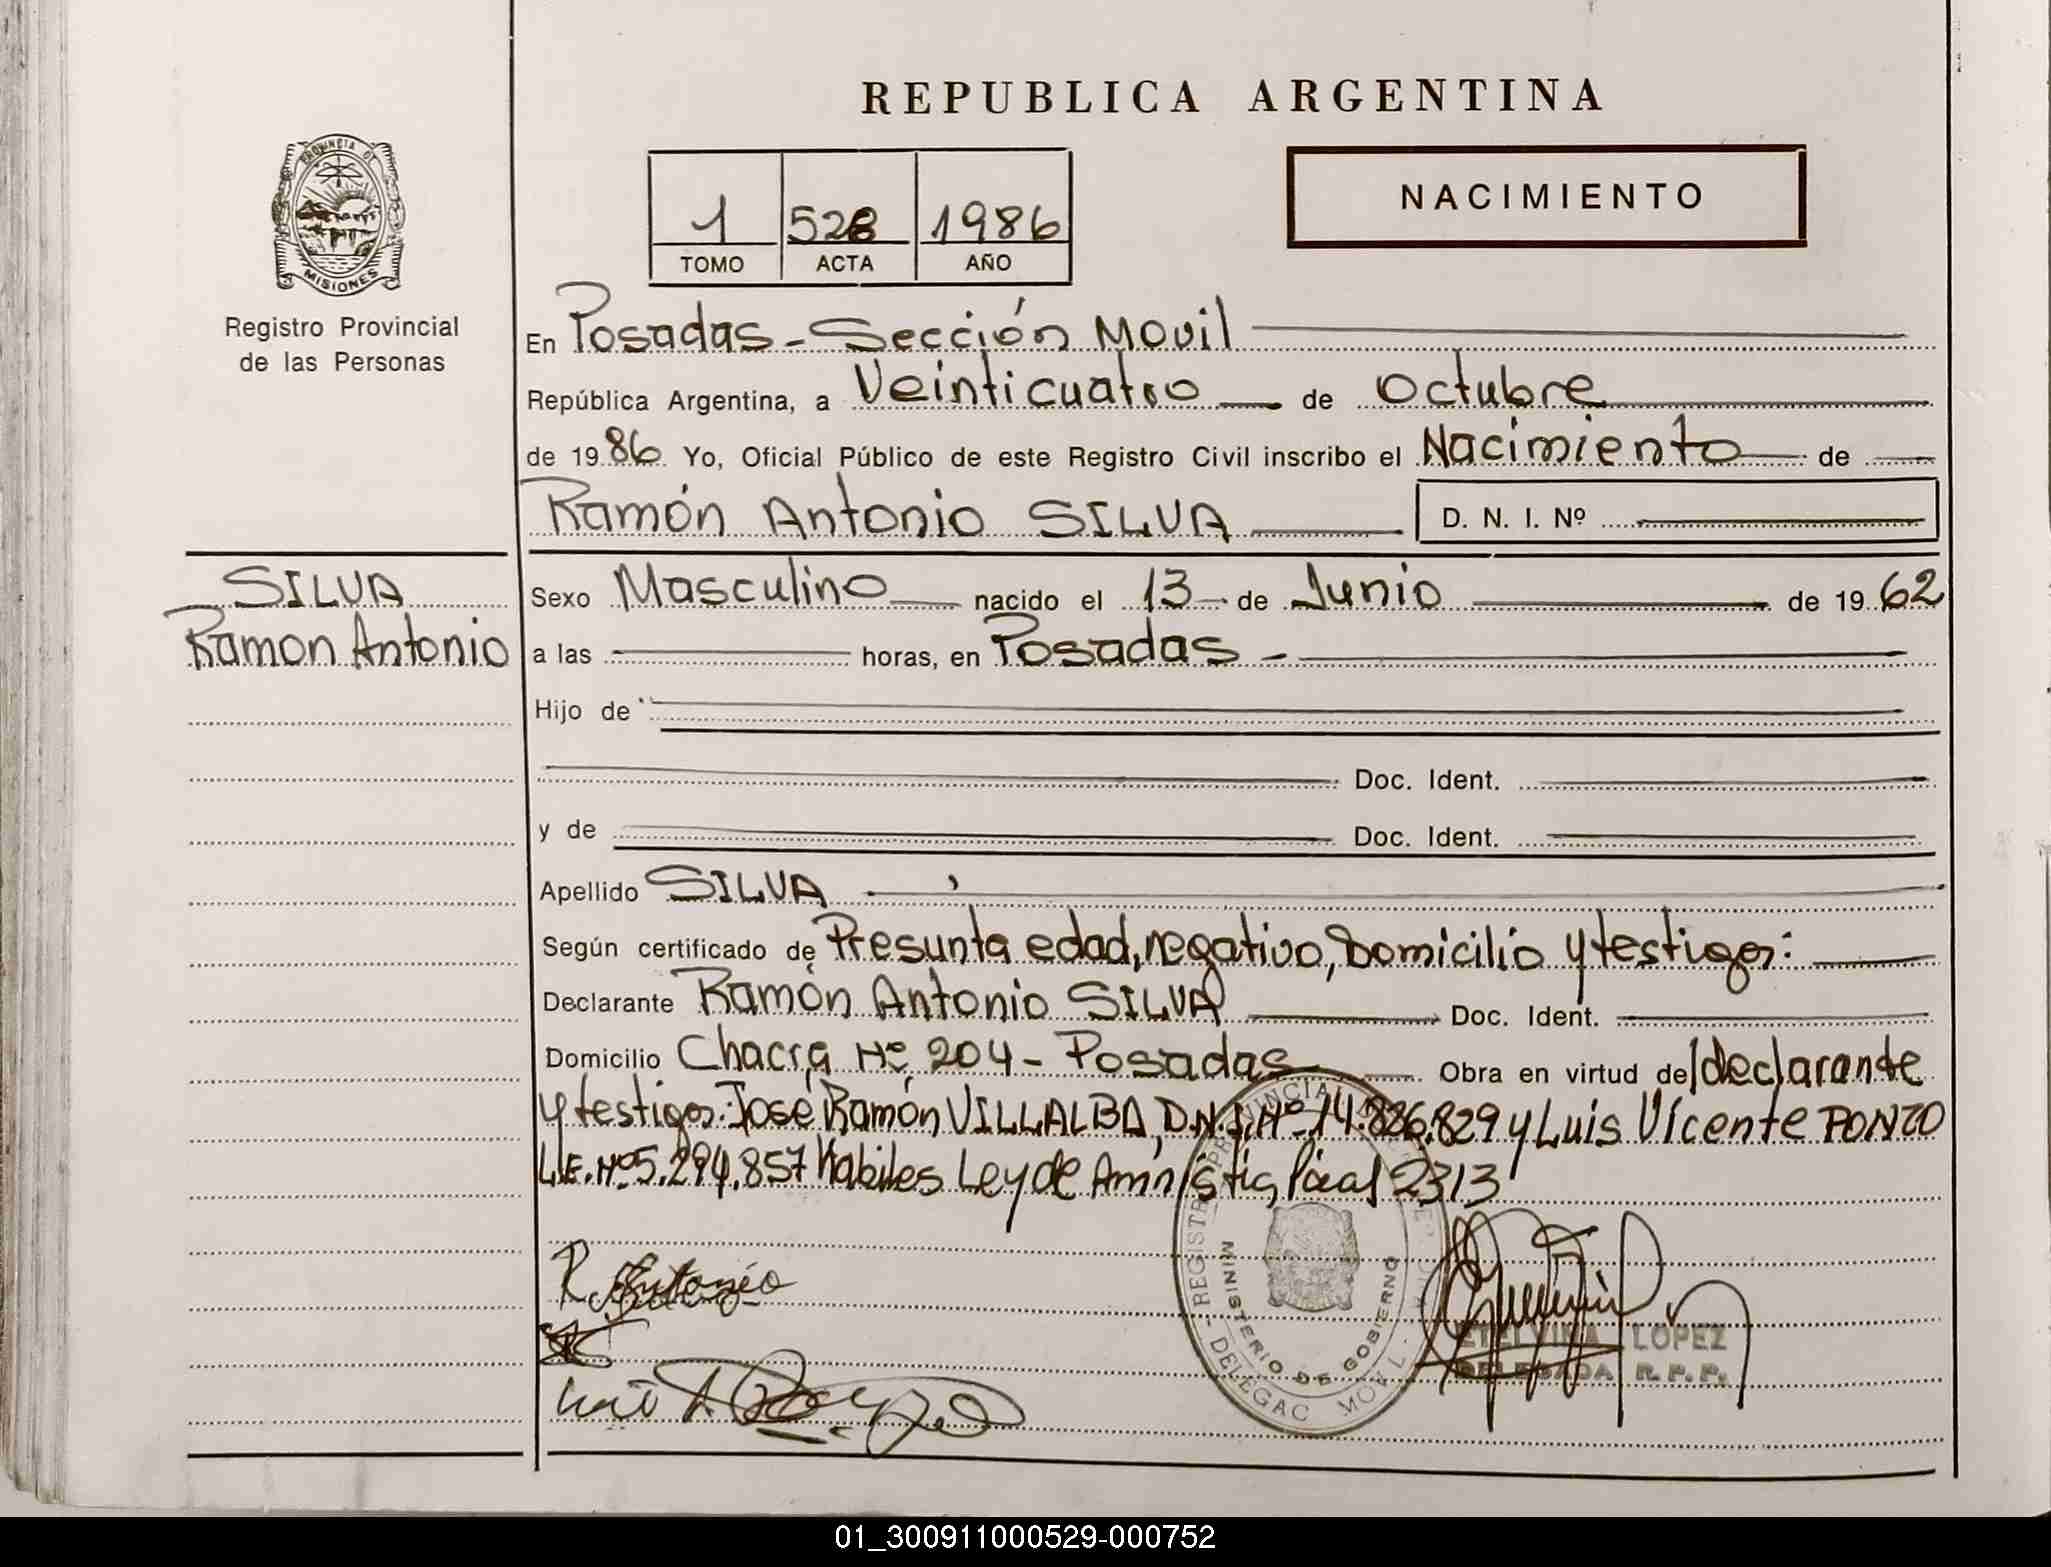 REPUBLICA ARGENTINA
PROVINCIA DE
MISIONES
Registro Provincial
de las Personas
1 528 1986
TOMO ACTA AÑO
NACIMIENTO
En Posadas - Sección Movil
República Argentina, a Veinticuatro de octubre
de 1986 Yo, Oficial Público de este Registro Civil inscribo el Nacimiento de
Ramón Antonio SILVA D. N. I. Nº
SILVA
Ramon Antonio
Sexo Masculino nacido el 13 de Junio de 1962
a las horas, en Posadas -
Hijo de
Doc. Ident.
y de Doc. Ident.
Apellido SILVA
Según certificado de Presunta edad, negativo, Domicilio y testigos:
Declarante Ramón Antonio SILVA Doc. Ident.
Domicilio Chacra Nº 204 - Posadas Obra en virtud de declarante
y testigos: José Ramón VILLALBA, D.N.I. Nº 14.826.829 y Luis Vicente PONZO
L.E. Nº 5.294.857 Habiles Ley de Amnistia 2313
R Antonio
MINISTERIO DE GOBIERNO
ETELVINA LOPEZ
DELEGADA R. P. P.
01_300911000529-000752